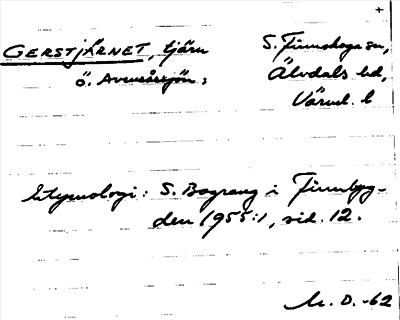 +
GERSTJÄRNET, tjärn S. Finnskoga sn,
ö. Avundsjön; Älvdals hd,
Värml. l
Etymologi: S. Bograng i Finnbyg-
den 1955:1, sid. 12.
M. O. -62